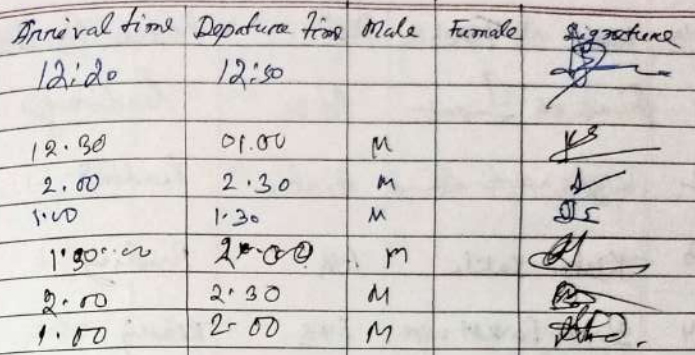 Arrival time Depature time Male Fumale Signature
12:20 12:50
12.30 01.00 M
2.00 2.30 M
1.00 1.30 M
1.30 2.00 M
2.00 2.30 M
1.00 2.00 M